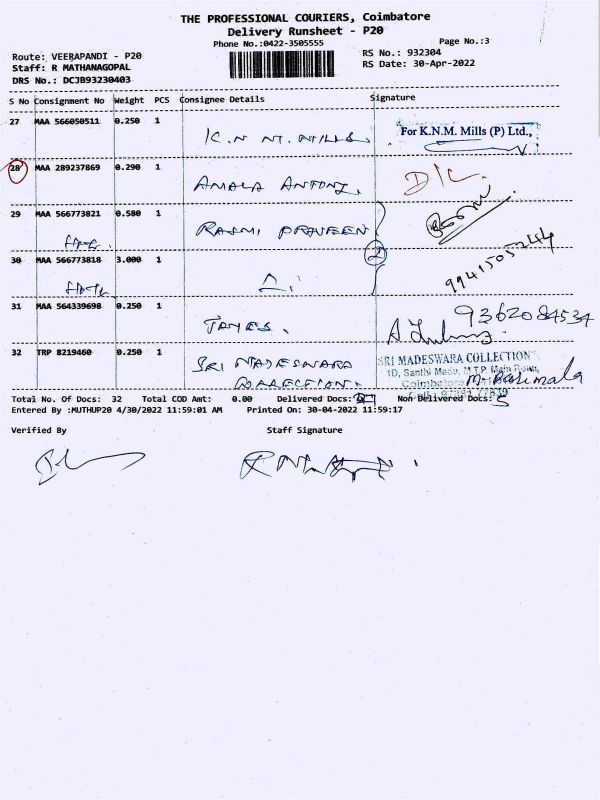 THE PROFESSIONAL COURIERS, Coimbatore
Delivery Runsheet - P20
Phone No.:0422-3505555
Page No.:3
Route: VEERAPANDI - P20
RS No.: 932304
Staff: R MATHANAGOPAL
RS Date: 30-Apr-2022
DRS No.: DCJB93230403
S No Consignment No Weight PCS Consignee Details Signature
27 MAA 566050511 0.250 1
K.N M. MILLS
For K.N.M. Mills (P) Ltd.,
28 MAA 289237869 0.290 1
AMALA ANTONY.
D/L.
29 MAA 566773821 0.580 1
RASMI PRAVEEN
30 MAA 566773818 3.000 1
2
9941505244
31 MAA 564339698 0.250 1
JAMES.
9362084534
32 TRP 8219460 0.250 1
SRI MADESWARA
COLLECTION.
SRI MADESWARA COLLECTION
1D, Santhi Medu, M.T.P. Main Road,
Coimbatore
Total No. Of Docs: 32 Total COD Amt: 0.00 Delivered Docs: Non Delivered Docs: 5
Entered By :MUTHUP20 4/30/2022 11:59:01 AM Printed On: 30-04-2022 11:59:17
Verified By Staff Signature